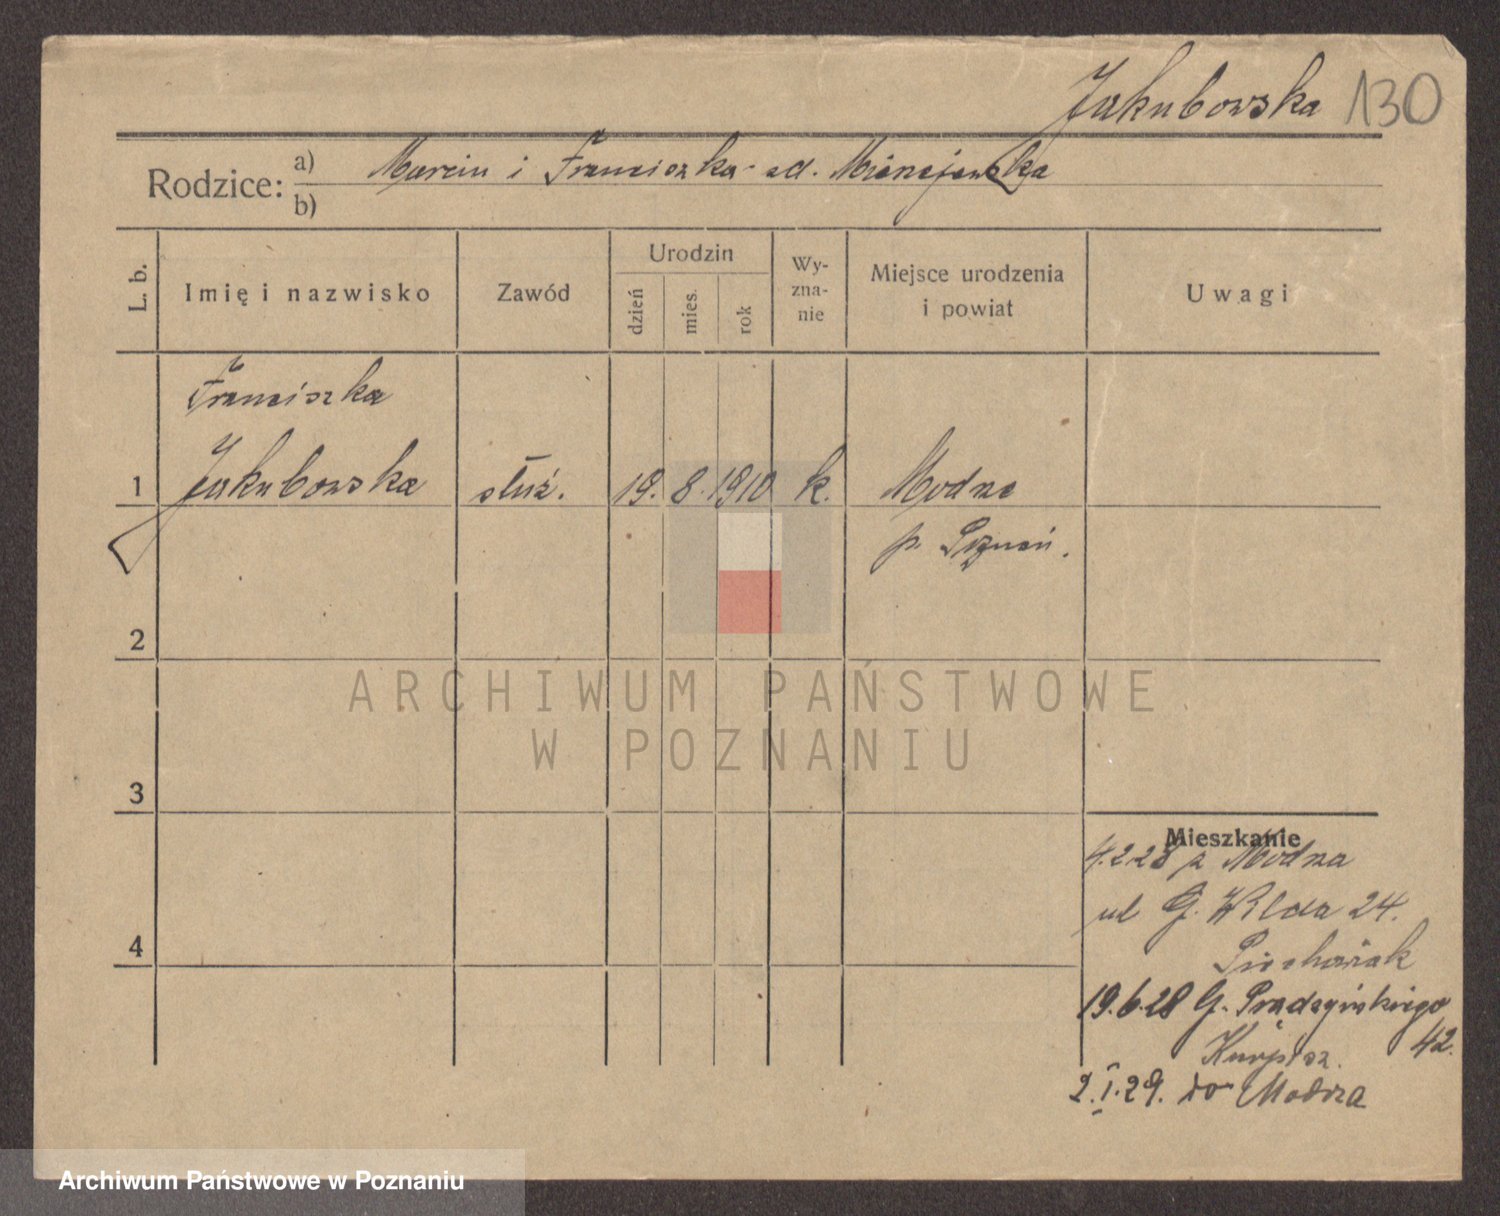 Jakubowska 130
Rodzice: a) Marcin i Franciszka
b)
L. b.
Imię i nazwisko
Zawód
Urodzin
dzień
mies.
rok
Wy-
zna-
nie
Miejsce urodzenia
i powiat
Uwagi
Franciszka
1 Jakubowska służ. 19. 8. 1910 k. Modrze
p. Poznań.
2
ARCHIWUM PAŃSTWOWE
W POZNANIU
3
Mieszkanie
4.2.28 z Modrza
ul G. Wilda 24.
4
Piechowiak
19.6.28 G. Prądzyńskiego
42.
2.I.29. do Modrza
Archiwum Państwowe w Poznaniu